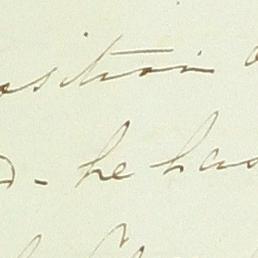 osition
- he has